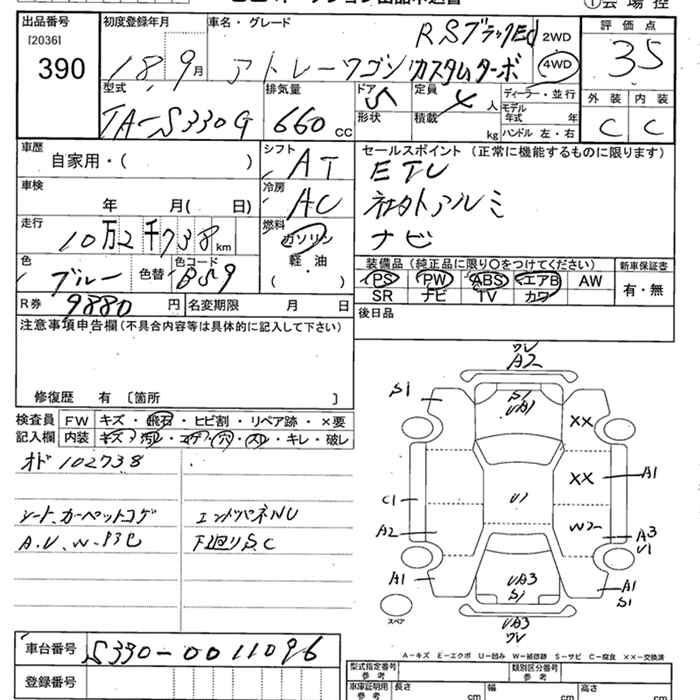 出品番号
[2036]
390
初度登録年月
18 9月
車名・グレード
RSブラックEd
アトレーワゴン カスタムターボ
2WD
4WD
評価点
3.5
型式
TA-S330G
排気量
660 cc
ドア
5
形状
定員
4 人
積載
kg
ディーラー・並行
モデル
年式 年
ハンドル 左・右
外装 内装
C C
車歴
自家用・( )
シフト
AT
セールスポイント (正常に機能するものに限ります)
ETC
社外アルミ
ナビ
車検
年 月( 日)
冷房
AC
走行
10万2千738km
燃料
ガソリン
軽・油
( )
色
ブルー
色替
色コード
B59
装備品 (純正品に限り○をつけてください)
新車保証書
PS PW ABS エアB AW
SR ナビ TV カワ
有・無
R券
9880円
名変期限 月 日
後日品
注意事項申告欄 (不具合内容等は具体的に記入して下さい)
修復歴 有 〔箇所 〕
検査員
記入欄
FW キズ・飛石・ヒビ割・リペア跡・×要
内装 キズ・汚れ・コゲ・穴・スレ・キレ・破レ
オド 102738
シート、カーペットコゲ
エンドパネルU
下廻りS.C
車台番号
S330-0011096
登録番号
UV
A2
S1
S1
UA1
XX
XX
A1
C1
U1
A2
W2
A3
U1
A1
UA3
S1
A1
S1
UA3
UV
スペア
A-キズ E-エクボ U-凹み W-補修跡 S-サビ C-腐食 ××-交換済
型式指定番号
参考
類別区分番号
参考
車庫証明用
参考
長さ cm
幅 cm
高さ cm